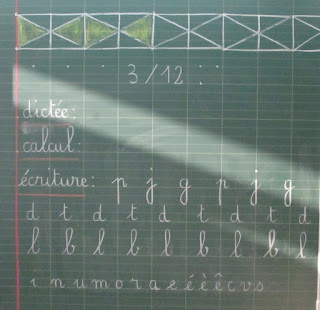 3/12
dictée:
calcul:
écriture: p j g p j g
d t d t d t d t d
l b l b l b l b l
i n u m o r a e é è ê c v s